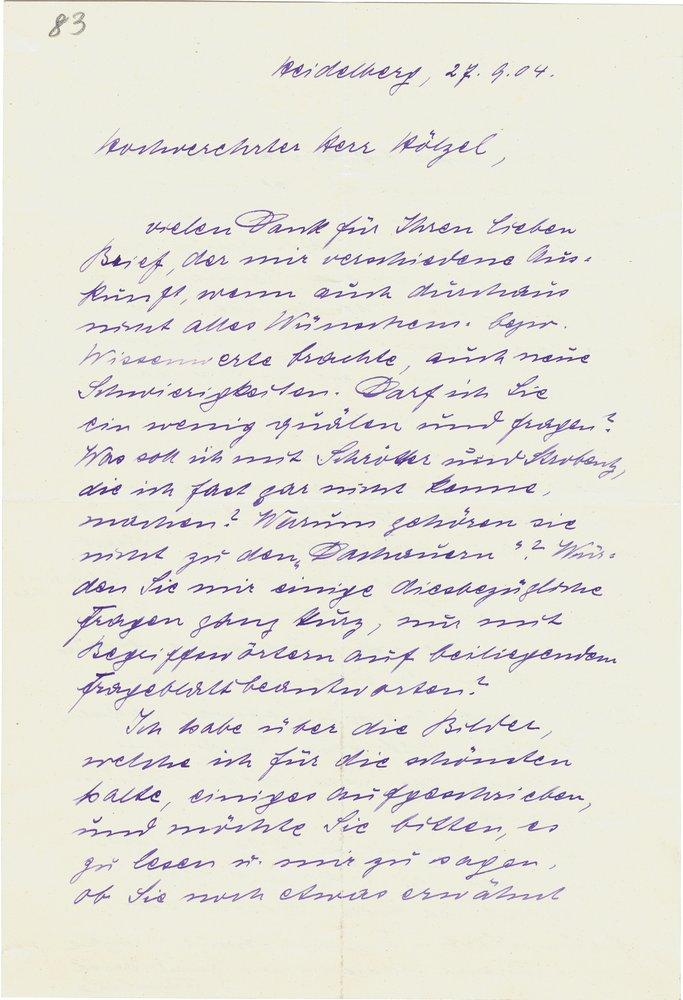 83
Heidelberg, 27. 9. 04.
Hochverehrter Herr Hölzel,
vielen Dank für Ihren lieben
Brief, der mir verschiedene Aus-
kunft, wenn auch durchaus
nicht alles Wünschens- bezw.
Wissenwerte brachte, auch neue
Schwierigkeiten. Darf ich Sie
ein wenig quälen und fragen?
Was soll ich mit Schrötter und Strobentz,
die ich fast gar nicht kenne,
machen? Warum gehören sie
nicht zu den „Dachauern"? Wür-
den Sie mir einige diesbezügliche
Fragen ganz kurz, nur mit
Begriffswörtern auf beiliegendem
Frageblatt beantworten?
Ich habe über die Bilder,
welche ich für die schönsten
halte, einiges aufgeschrieben,
und möchte Sie bitten, es
zu lesen u. mir zu sagen,
ob Sie noch etwas erwähnt